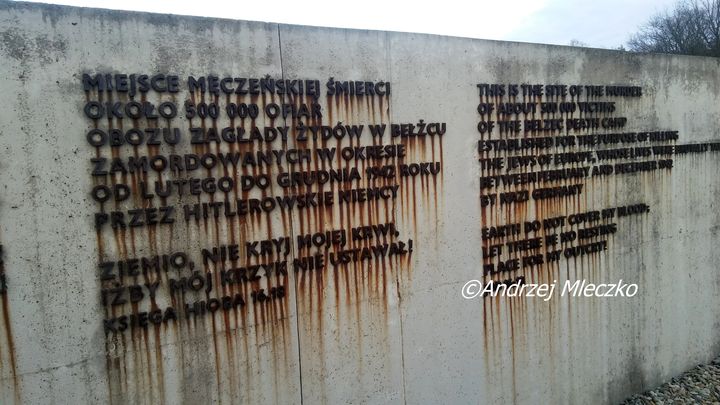 MIEJSCE MĘCZEŃSKIEJ ŚMIERCI
OKOŁO 500 000 OFIAR
OBOZU ZAGŁADY ŻYDÓW W BEŁŻCU
ZAMORDOWANYCH W OKRESIE
OD LUTEGO DO GRUDNIA 1942 ROKU
PRZEZ HITLEROWSKIE NIEMCY
ZIEMIO, NIE KRYJ MOJEJ KRWI,
IŻBY MÓJ KRZYK NIE USTAWAŁ!
KSIĘGA HIOBA 16.18
THIS IS THE SITE OF THE MURDER
OF ABOUT 500 000 VICTIMS
OF THE BELZEC DEATH CAMP
ESTABLISHED FOR THE PURPOSE OF KILLING
THE JEWS OF EUROPE, WHOSE LIVES WERE
BETWEEN FEBRUARY AND DECEMBER 1942
BY NAZI GERMANY
EARTH DO NOT COVER MY BLOOD;
LET THERE BE NO RESTING
PLACE FOR MY OUTCRY!
©Andrzej Mleczko